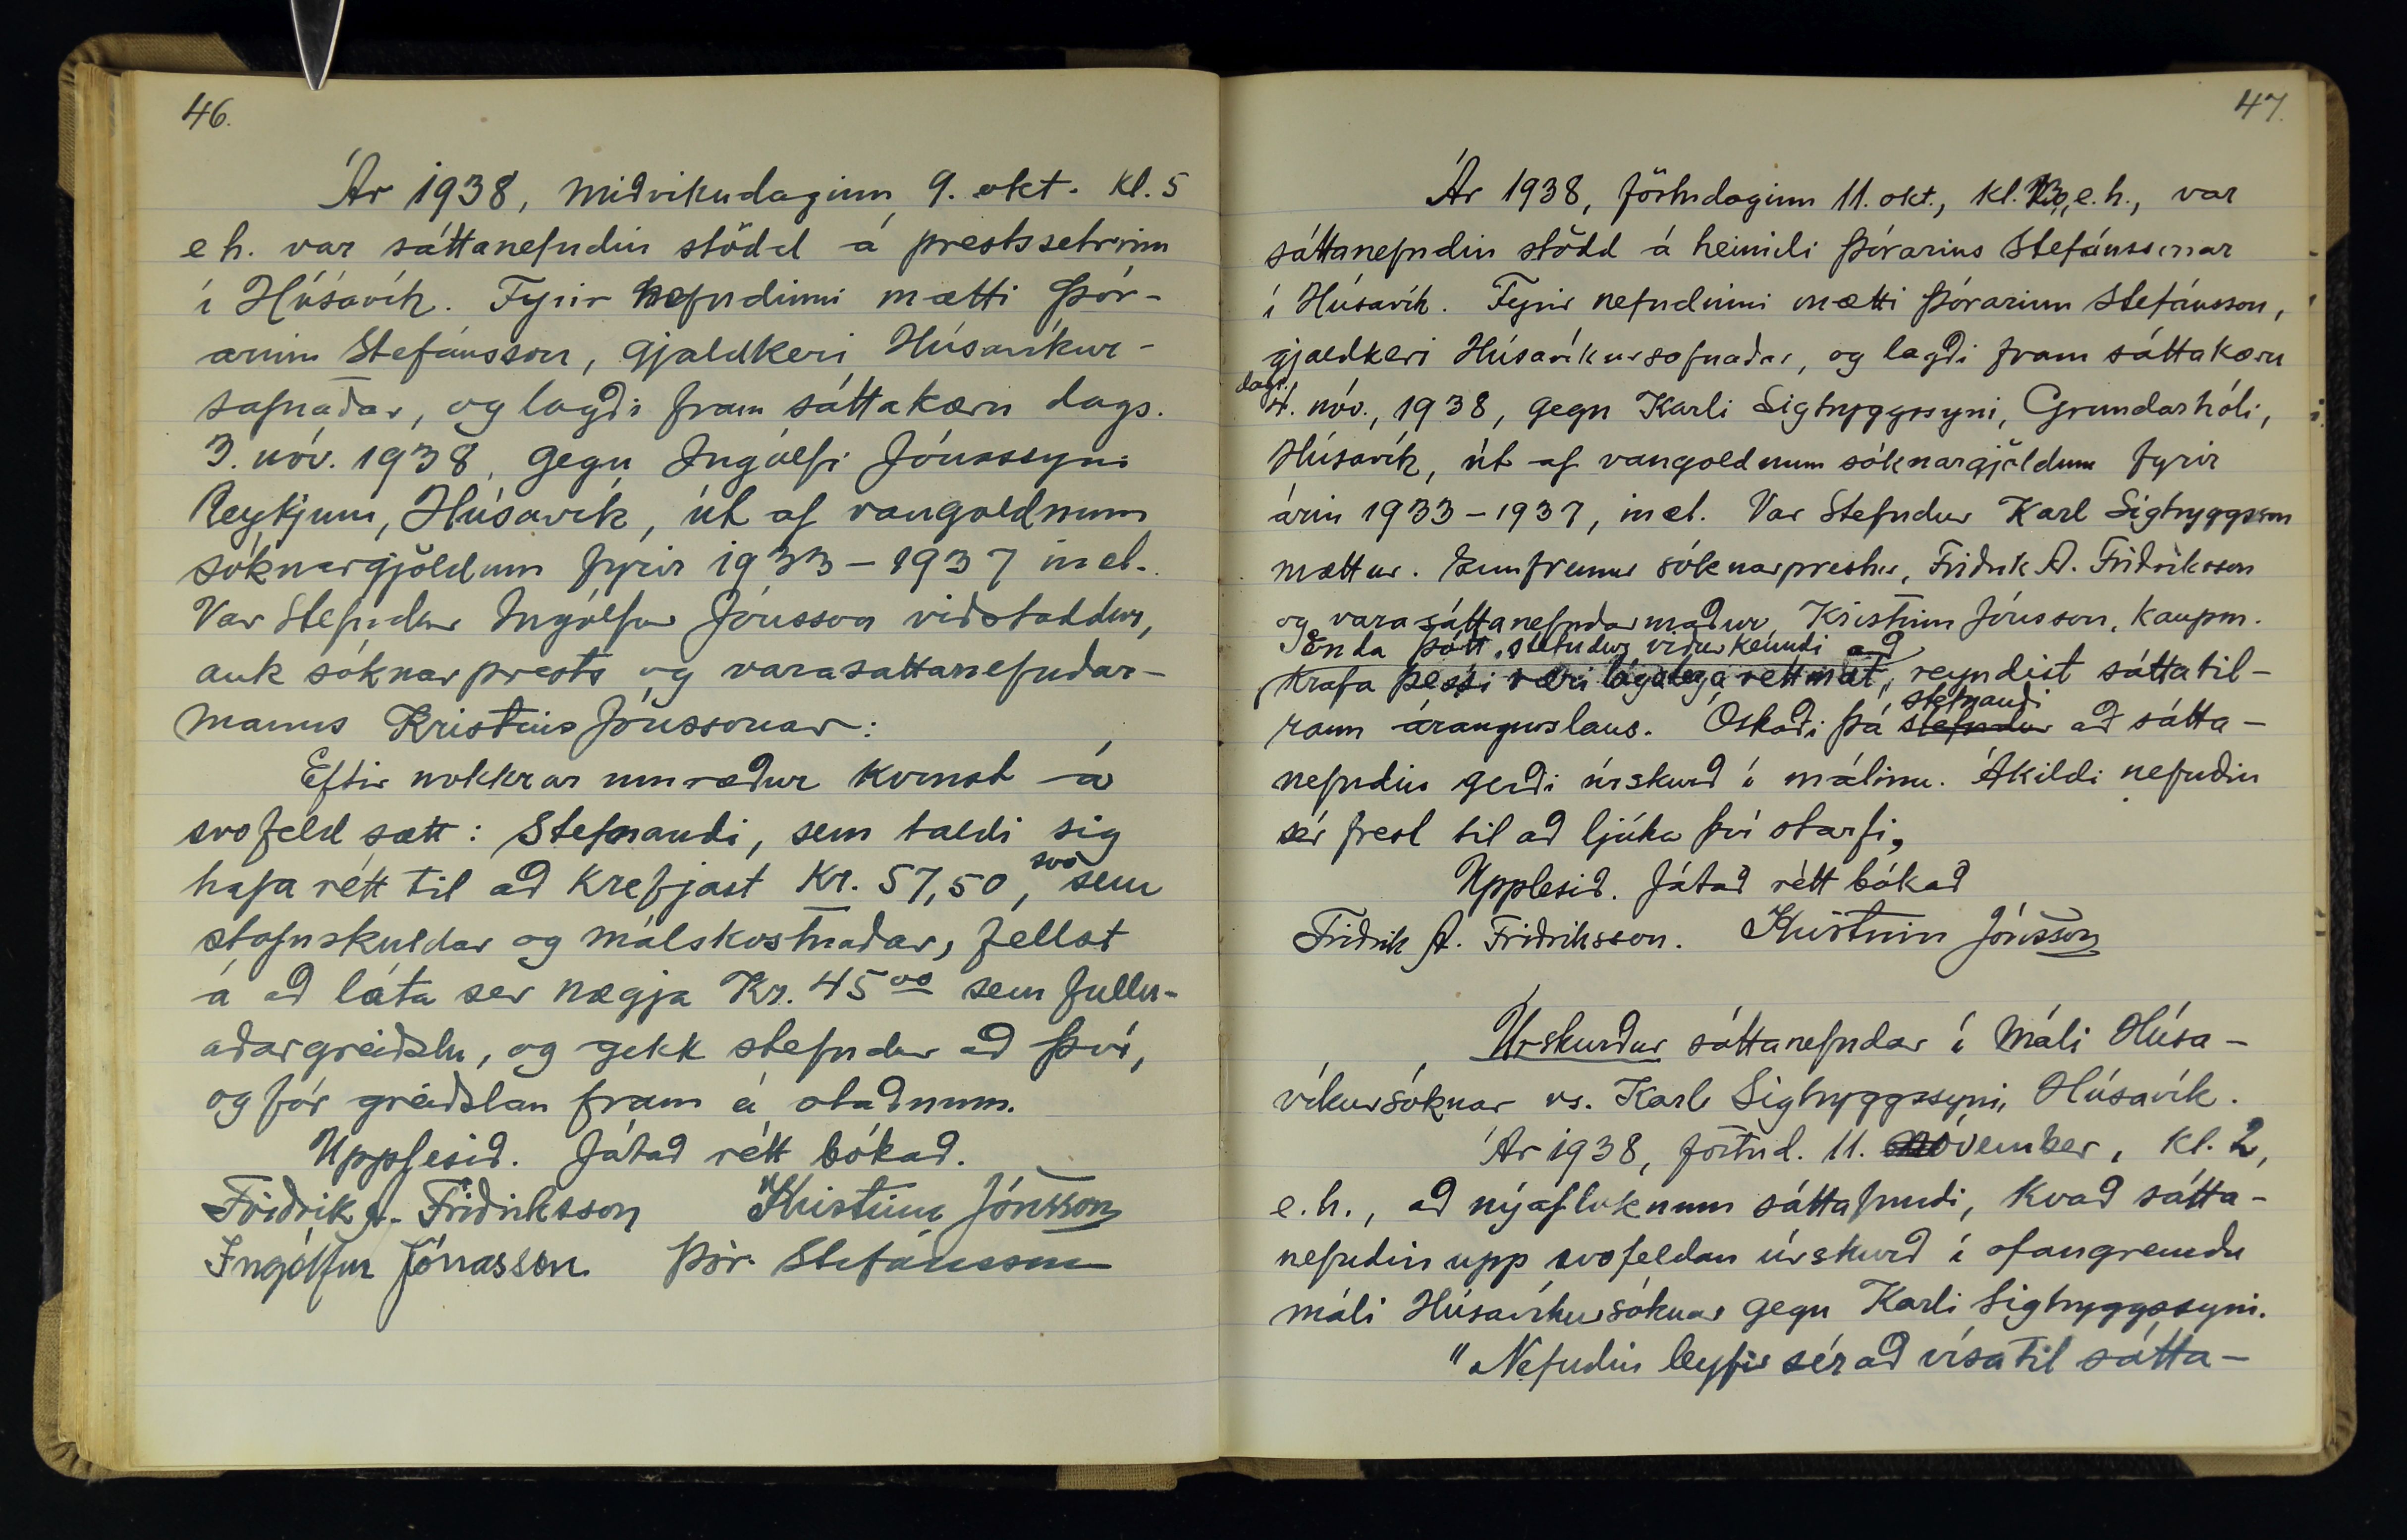 46.
Ár 1938, miðvikudaginn 9. okt. kl. 5
e h. var sáttanefndin stödd á prestssetrinu
í Húsavík. Fyrir nefndinni mætti Þór-
arinn Stefánsson, gjaldkeri Húsavíkur-
safnaðar, og lagði fram sáttakæru dags.
3. nóv. 1938, gegn Ingólfi Jónassyni
Reykjum, Húsavík, út af vangoldnum
sóknargjöldum fyrir 1933-1937 incl.
Var stefndur Ingólfur Jónsson viðstaddur,
auk sóknarprests og varasattanefndar-
manns Kristins Jónssonar:
Eftir nokkrar umræður komst á
svofeld sætt: Stefnandi, sem taldi sig
hafa rétt til að krefjast Kr. 57,50, svo sem
stofnskuldar og málskostnaðar, fellst
á að láta ser nægja Kr. 45 00 sem fulln-
aðargreiðslu, og gekk stefndur að því,
og fór greiðslan fram á staðnum.
Upplesið. Játað rétt bókað.
Friðrik A. Friðriksson Kristinn Jónsson
Ingólfur Jónasson Þór. Stefánsson
47.
Ár 1938, föstudaginn 11. okt., kl. e.h., var
sáttanefndin stödd á heimili Þórarins Stefánssonar
í Húsavík. Fyrir nefndinni mætti Þórarinn Stefánsson,
gjaldkeri Húsavíkursafnaðar, og lagði fram sáttakæru
dags. 4. nóv., 1938, gegn Karli Sigtryggssyni, Grundarhóli,
Húsavík, út af vangoldnum sóknargjöldum fyrir
árin 1933-1937, incl. Var stefndur Karl Sigtryggsson
mættur. Ennfremur sóknarprestur, Friðrik A. Friðriksson
og varasáttanefndarmaður Kristinn Jónsson, kaupm.
Enda þótt stefndur viðurkenndi að
krafa þessi væri lagalega réttmæt, reyndist sáttatil-
raun árangurslaus. Óskaði þá stefndur stefnandi að sátta-
nefndin gerði úrskurð í málinu. Áskildi nefndin
sér frest til að ljúka því starfi,
Upplesið. Játað rétt bókað
Friðrik A. Friðriksson. Kristinn Jónsson
Úrskurður sáttanefndar í máli Húsa-
víkursóknar vs. Karl Sigtryggssyni, Húsavík.
Ár 1938, föstud. 11. nóvember, kl. 2,
e.h., að nýafloknum sáttafundi, kvað sátta-
nefndin upp svofeldan úrskurð í ofangreindu
máli Húsavíkursóknar gegn Karli Sigtryggssyni.
"Nefndin leyfir sér að vísa til sátta-